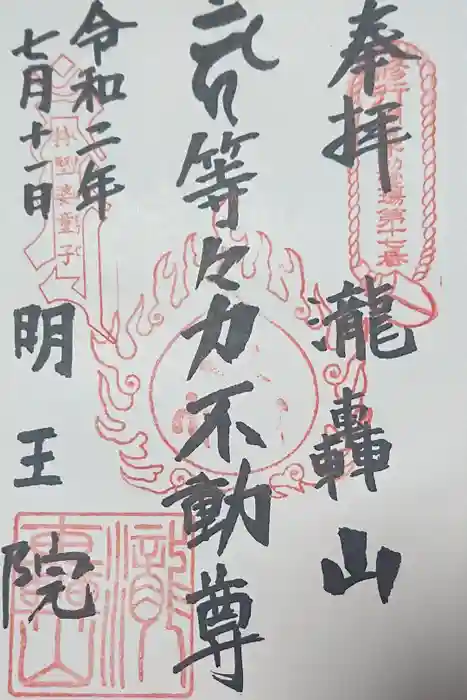 奉拝
霊場第十七番
瀧轟山
等々力不動尊
令和二年
七月十一日
婆童子
明王院